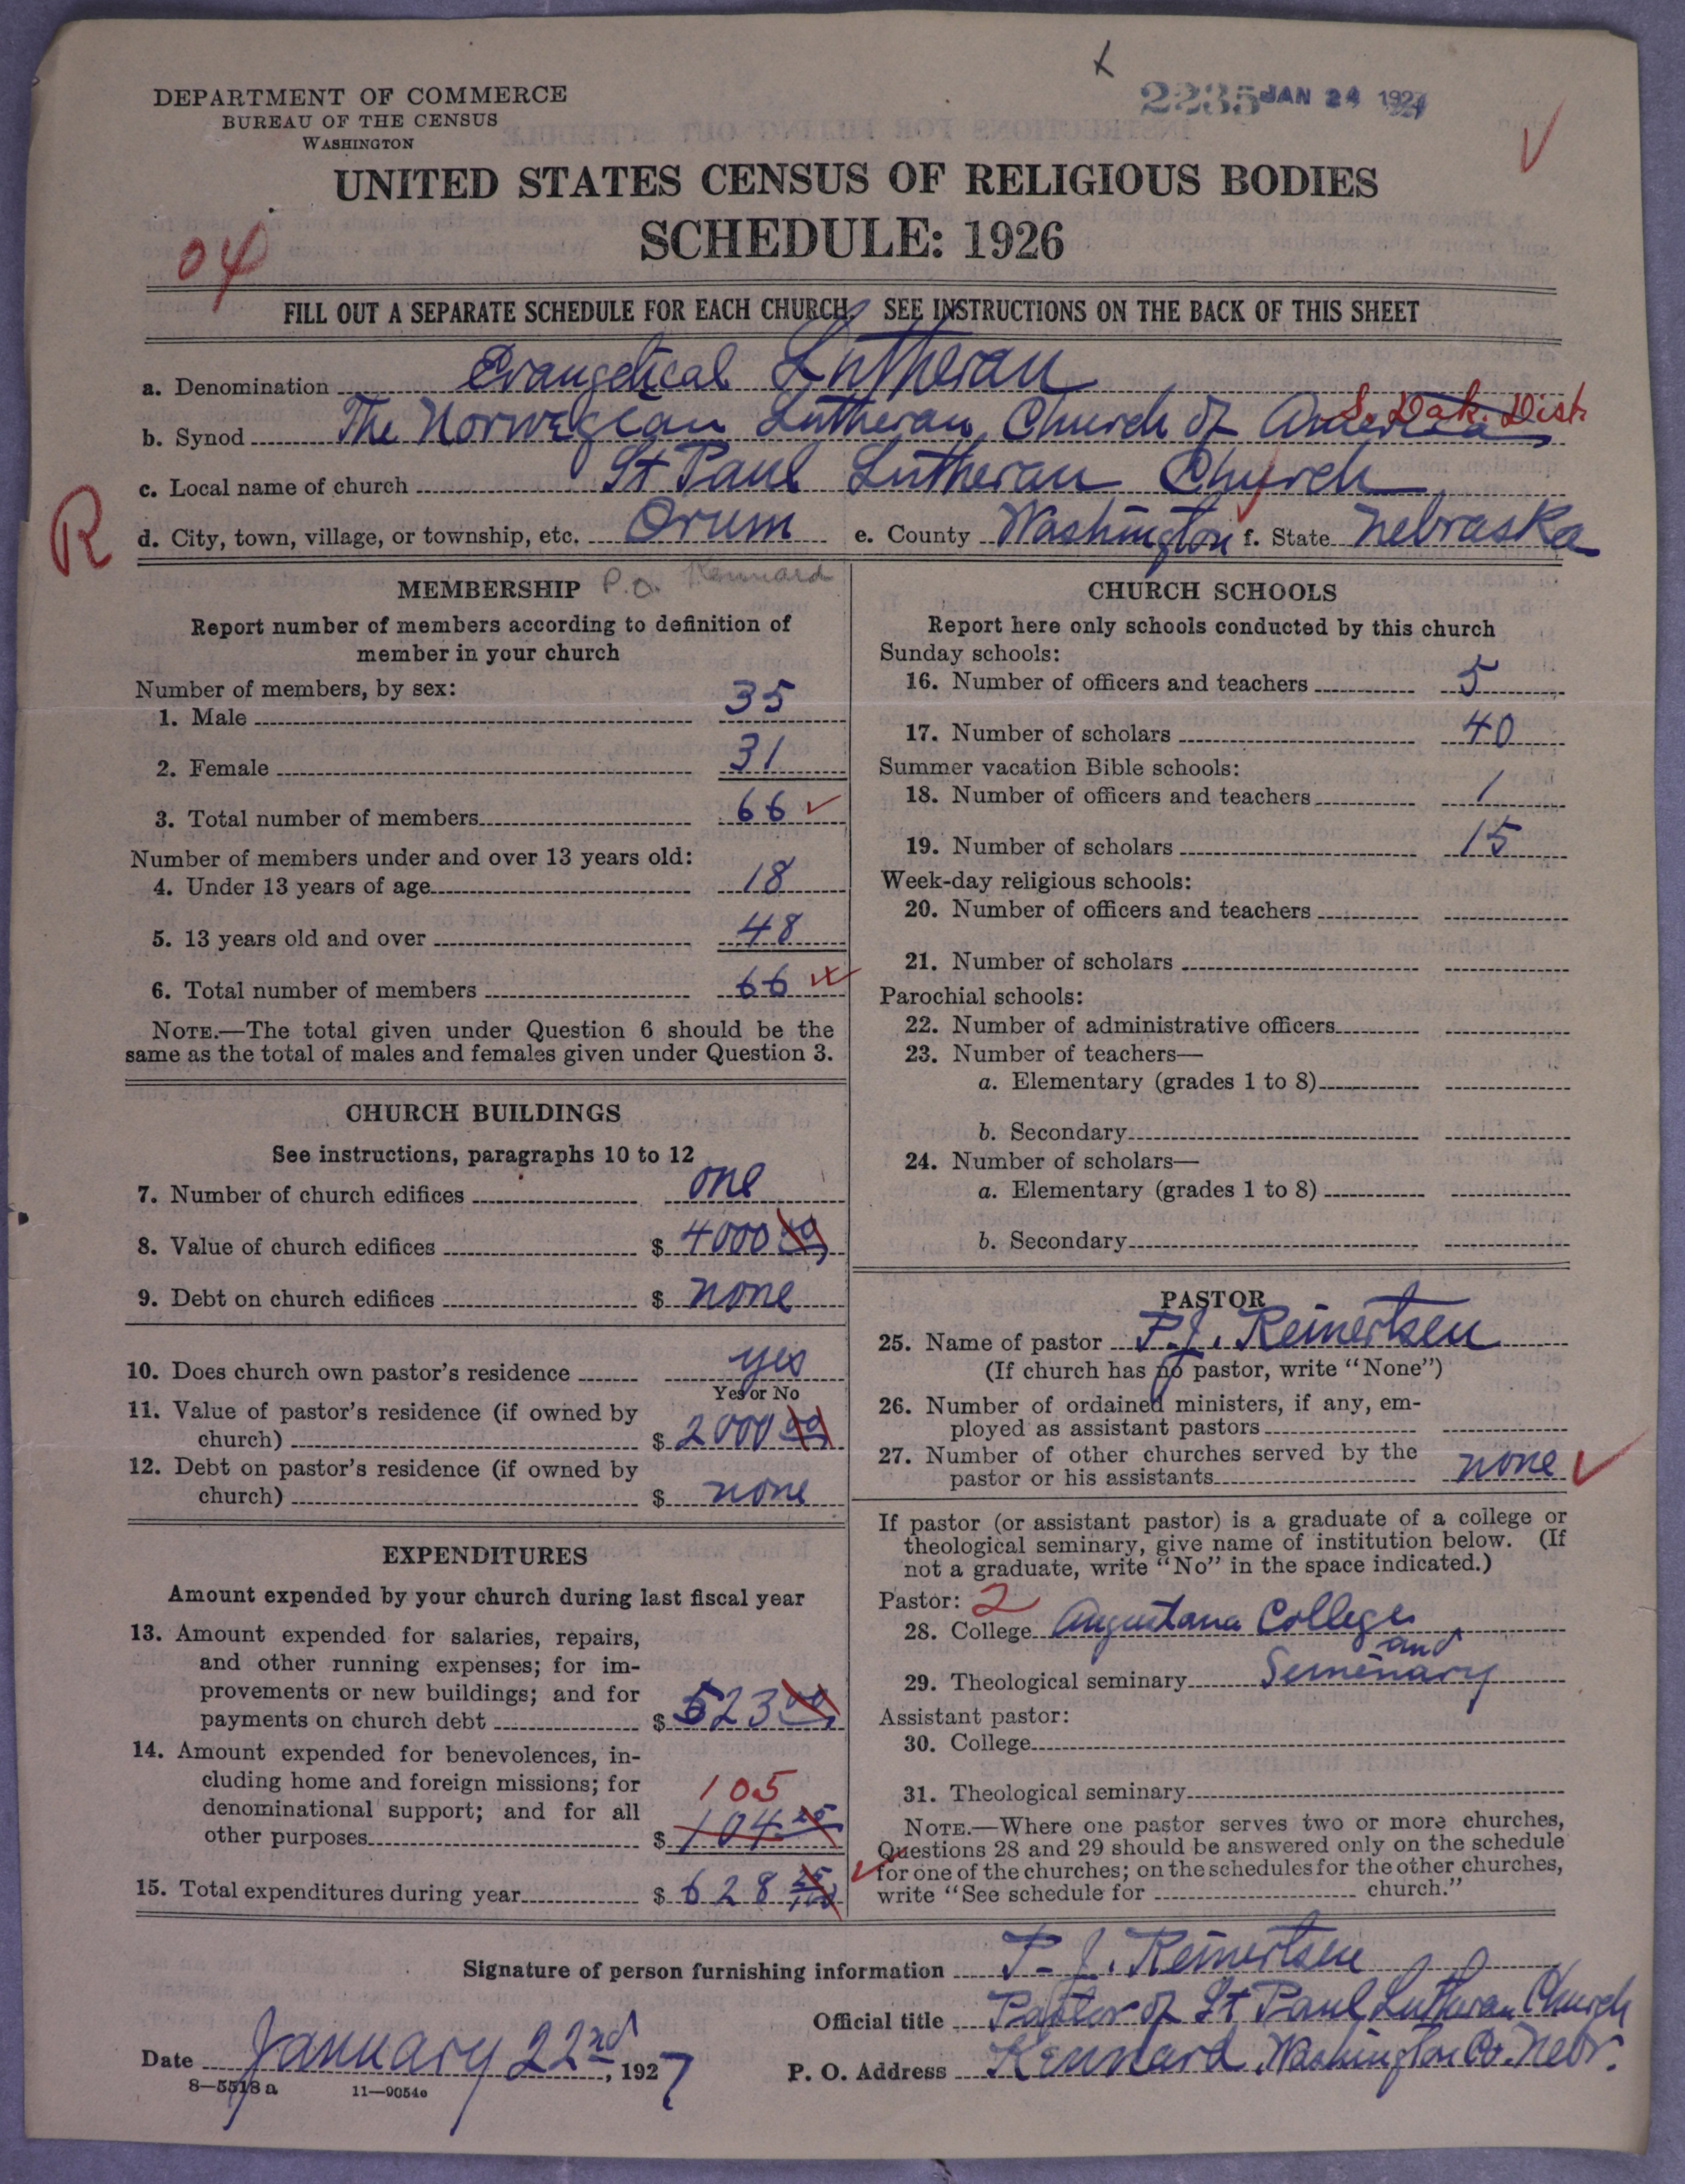 DEPARTMENT OF COMMERCE
BUREAU OF THE CENSUS
WASHINGTON
2235 JAN 24 1927
UNITED STATES CENSUS OF RELIGIOUS BODIES
SCHEDULE: 1926
04
FILL OUT A SEPARATE SCHEDULE FOR EACH CHURCH. SEE INSTRUCTIONS ON THE BACK OF THIS SHEET
a. Denomination Evangelical Lutheran
b. Synod The Norwegian Lutheran Church of America S. Dak. Dist.
c. Local name of church St Paul Lutheran Church
R
d. City, town, village, or township, etc. Orum e. County Washington f. State Nebraska
MEMBERSHIP P.O. Kennard
Report number of members according to definition of
member in your church
Number of members, by sex:
1. Male 35
2. Female 31
3. Total number of members 66
Number of members under and over 13 years old:
4. Under 13 years of age 18
5. 13 years old and over 48
6. Total number of members 66
NOTE.—The total given under Question 6 should be the
same as the total of males and females given under Question 3.
CHURCH BUILDINGS
See instructions, paragraphs 10 to 12
7. Number of church edifices one
8. Value of church edifices $ 4000 00
9. Debt on church edifices $ none
10. Does church own pastor's residence yes
Yes or No
11. Value of pastor's residence (if owned by
church) $ 2000 00
12. Debt on pastor's residence (if owned by
church) $ none
EXPENDITURES
Amount expended by your church during last fiscal year
13. Amount expended for salaries, repairs,
and other running expenses; for im-
provements or new buildings; and for
payments on church debt $ 523 00
14. Amount expended for benevolences, in-
cluding home and foreign missions; for
denominational support; and for all
105
other purposes $ 104 25
15. Total expenditures during year $ 628 25/100
CHURCH SCHOOLS
Report here only schools conducted by this church
Sunday schools:
16. Number of officers and teachers 5
17. Number of scholars 40
Summer vacation Bible schools:
18. Number of officers and teachers 1
19. Number of scholars 15
Week-day religious schools:
20. Number of officers and teachers
21. Number of scholars
Parochial schools:
22. Number of administrative officers
23. Number of teachers—
a. Elementary (grades 1 to 8)
b. Secondary
24. Number of scholars—
a. Elementary (grades 1 to 8)
b. Secondary
PASTOR
25. Name of pastor P. J. Reinertsen
(If church has no pastor, write "None")
26. Number of ordained ministers, if any, em-
ployed as assistant pastors
27. Number of other churches served by the
pastor or his assistants none
If pastor (or assistant pastor) is a graduate of a college or
theological seminary, give name of institution below. (If
not a graduate, write "No" in the space indicated.)
Pastor: 2
28. College Augustana College
and
29. Theological seminary Seminary
Assistant pastor:
30. College
31. Theological seminary
NOTE.—Where one pastor serves two or more churches,
Questions 28 and 29 should be answered only on the schedule
for one of the churches; on the schedules for the other churches,
write "See schedule for church."
Signature of person furnishing information P. J. Reinertsen
Official title Pastor of St Paul Lutheran Church
Date January 22nd, 1927
P. O. Address Kennard, Washington Co. Nebr.
8—5518 a 11—9054c